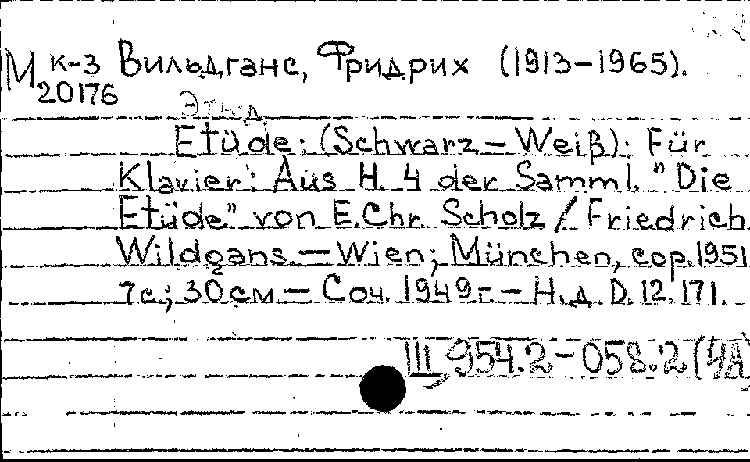 М к-3 Вильдганс, Фридрих (1913-1965).
20176
Этюд
Etüde: (Schwarz - Weiß): Für
Klavier: Aus H. 4 der Samml. "Die
Etüde" von E. Chr. Scholz / Friedrich
Wildgans. - Wien; München, cop. 1951
7 с.; 30 см - Соч. 1949 г. - Н. д. D. 12.171.
III 954.2-058.2 (4А)